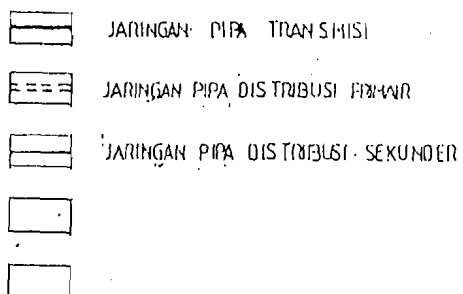 JARINGAN PIPA TRANSMISI
JARINGAN PIPA DISTRIBUSI PRIMAIR
JARINGAN PIPA DISTRIBUSI SEKUNDER